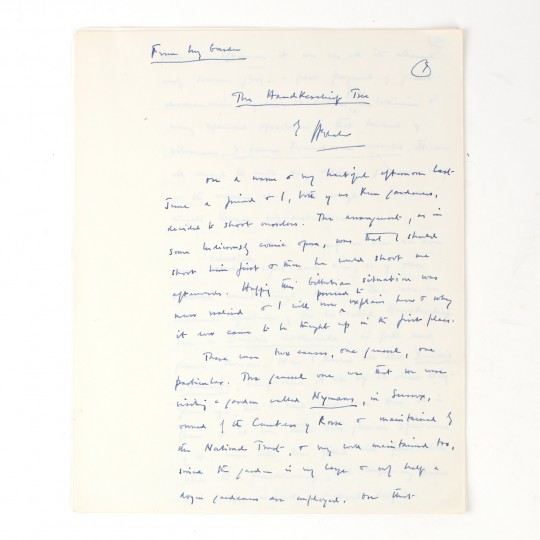 From my Garden
1
The Handkerchief Tree
On a warm & very beautiful afternoon last
June a friend & I, both of us keen gardeners,
decided to shoot ourselves. The arrangement, as in
some ludicrously comic opera, was that I should
shoot him first & then he would shoot me
afterwards. Happily this Gilbertian situation was
never realised & I will now proceed to explain how & why
it ever came to be thought up in the first place.
There were two causes, one general, one
particular. The general one was that we were
visiting a garden called Nymans, in Sussex,
owned by the Countess of Rosse & maintained by
the National Trust, & very well maintained too,
since the garden is very large & only half a
dozen gardeners are employed. On that